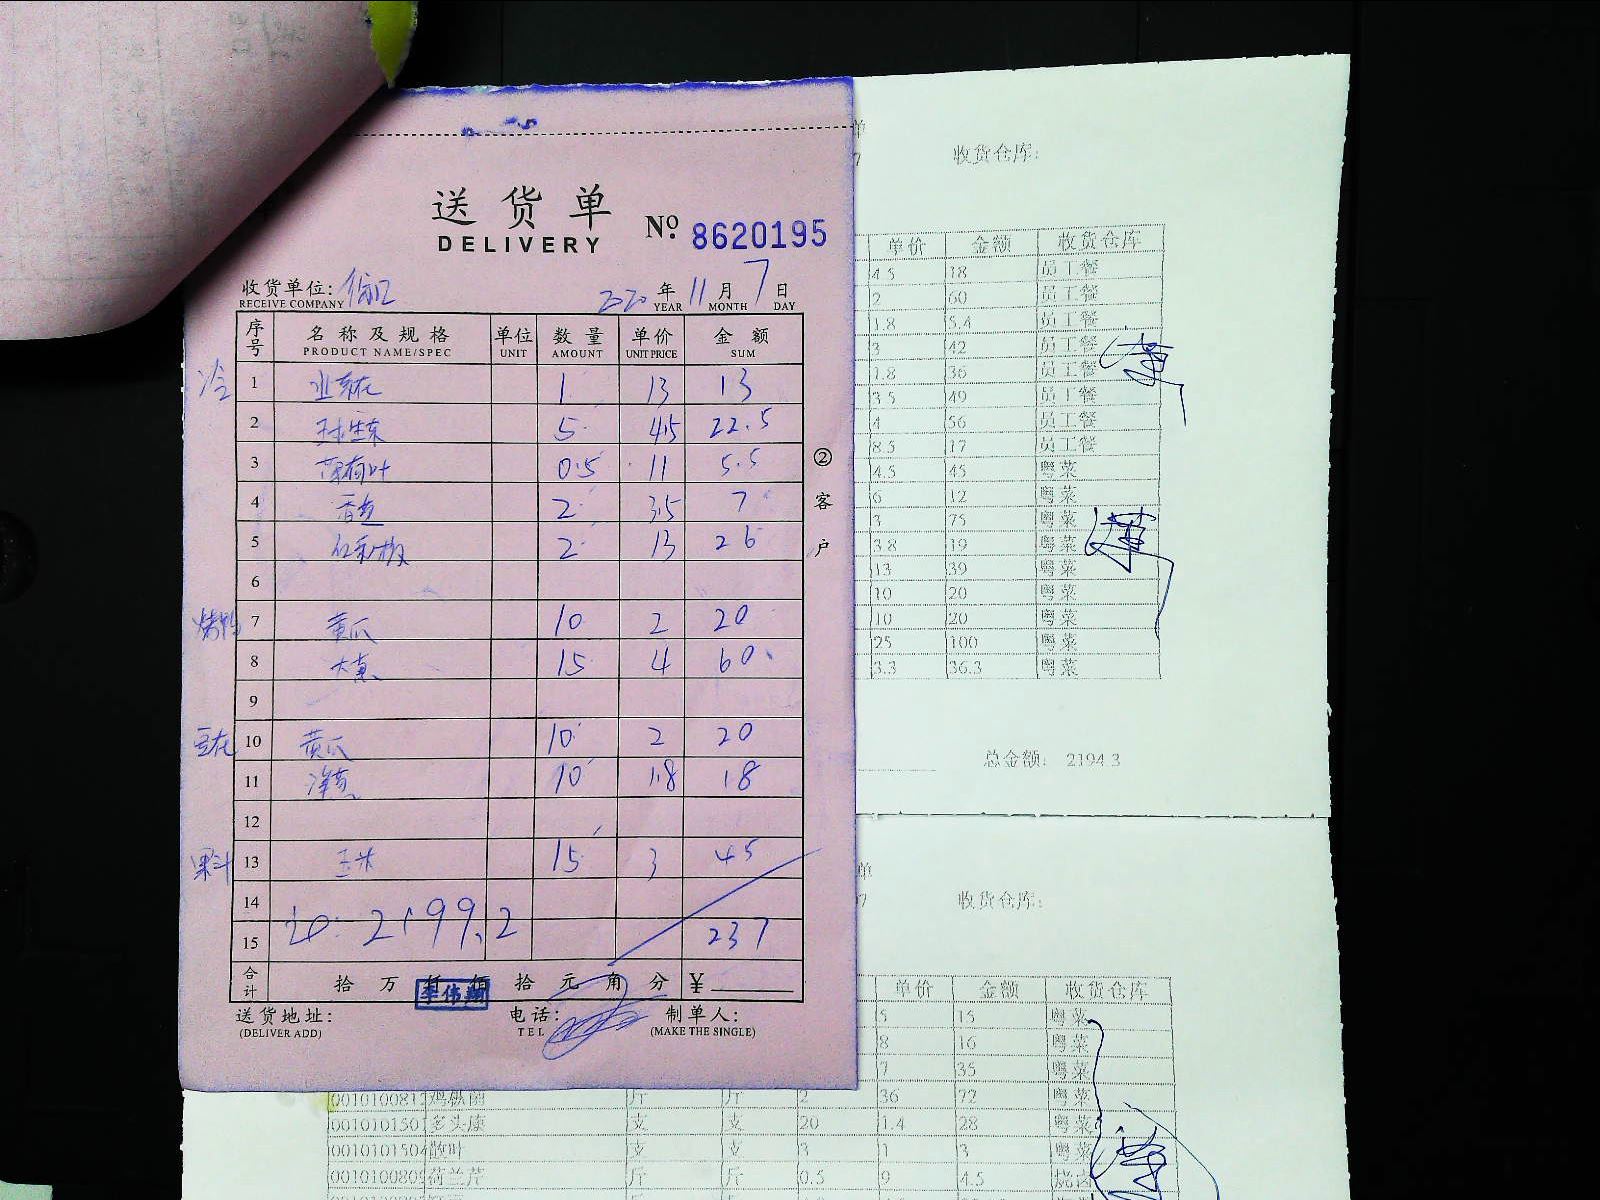 送货单
DELIVERY
No. 8620195
收货单位:
RECEIVE COMPANY
2020 年 11 月 7 日
YEAR MONTH DAY
序号 名称及规格 单位 数量 单价 金额
PRODUCT NAME/SPEC UNIT AMOUNT UNIT PRICE SUM
冷 1 1 13 13
2 5 4.5 22.5
3 薄荷叶 0.5 11 5.5
4 2 3.5 7
5 2 13 26
6
烤鸭 7 黄瓜 10 2 20
8 大葱 15 4 60
9
10 黄瓜 10 2 20
11 10 1.8 18
12
13 玉米 15 3 45
14
2199.2
15 237
合计 拾 万 仟 佰 拾 元 角 分 ¥
李伟翔
送货地址: 电话: 制单人:
(DELIVER ADD) TEL (MAKE THE SINGLE)
②客户
单
收货仓库:
单价 金额 收货仓库
4.5 18 员工餐
2 60 员工餐
1.8 5.4 员工餐
3 42 员工餐
1.8 36 员工餐
3.5 49 员工餐
4 56 员工餐
8.5 17 员工餐
4.5 45 粤菜
6 12 粤菜
3 75 粤菜
3.8 19 粤菜
13 39 粤菜
10 20 粤菜
10 20 粤菜
25 100 粤菜
3.3 36.3 粤菜
总金额: 2194.3
单
收货仓库:
单价 金额 收货仓库
5 15 粤菜
8 16 粤菜
7 35 粤菜
斤 斤 2 36 72 粤菜
0010101501 多头康 支 支 20 1.4 28 粤菜
0010101504 散叶 支 支 3 1 3 粤菜
001010080 荷兰芹 斤 斤 0.5 9 4.5 烧卤